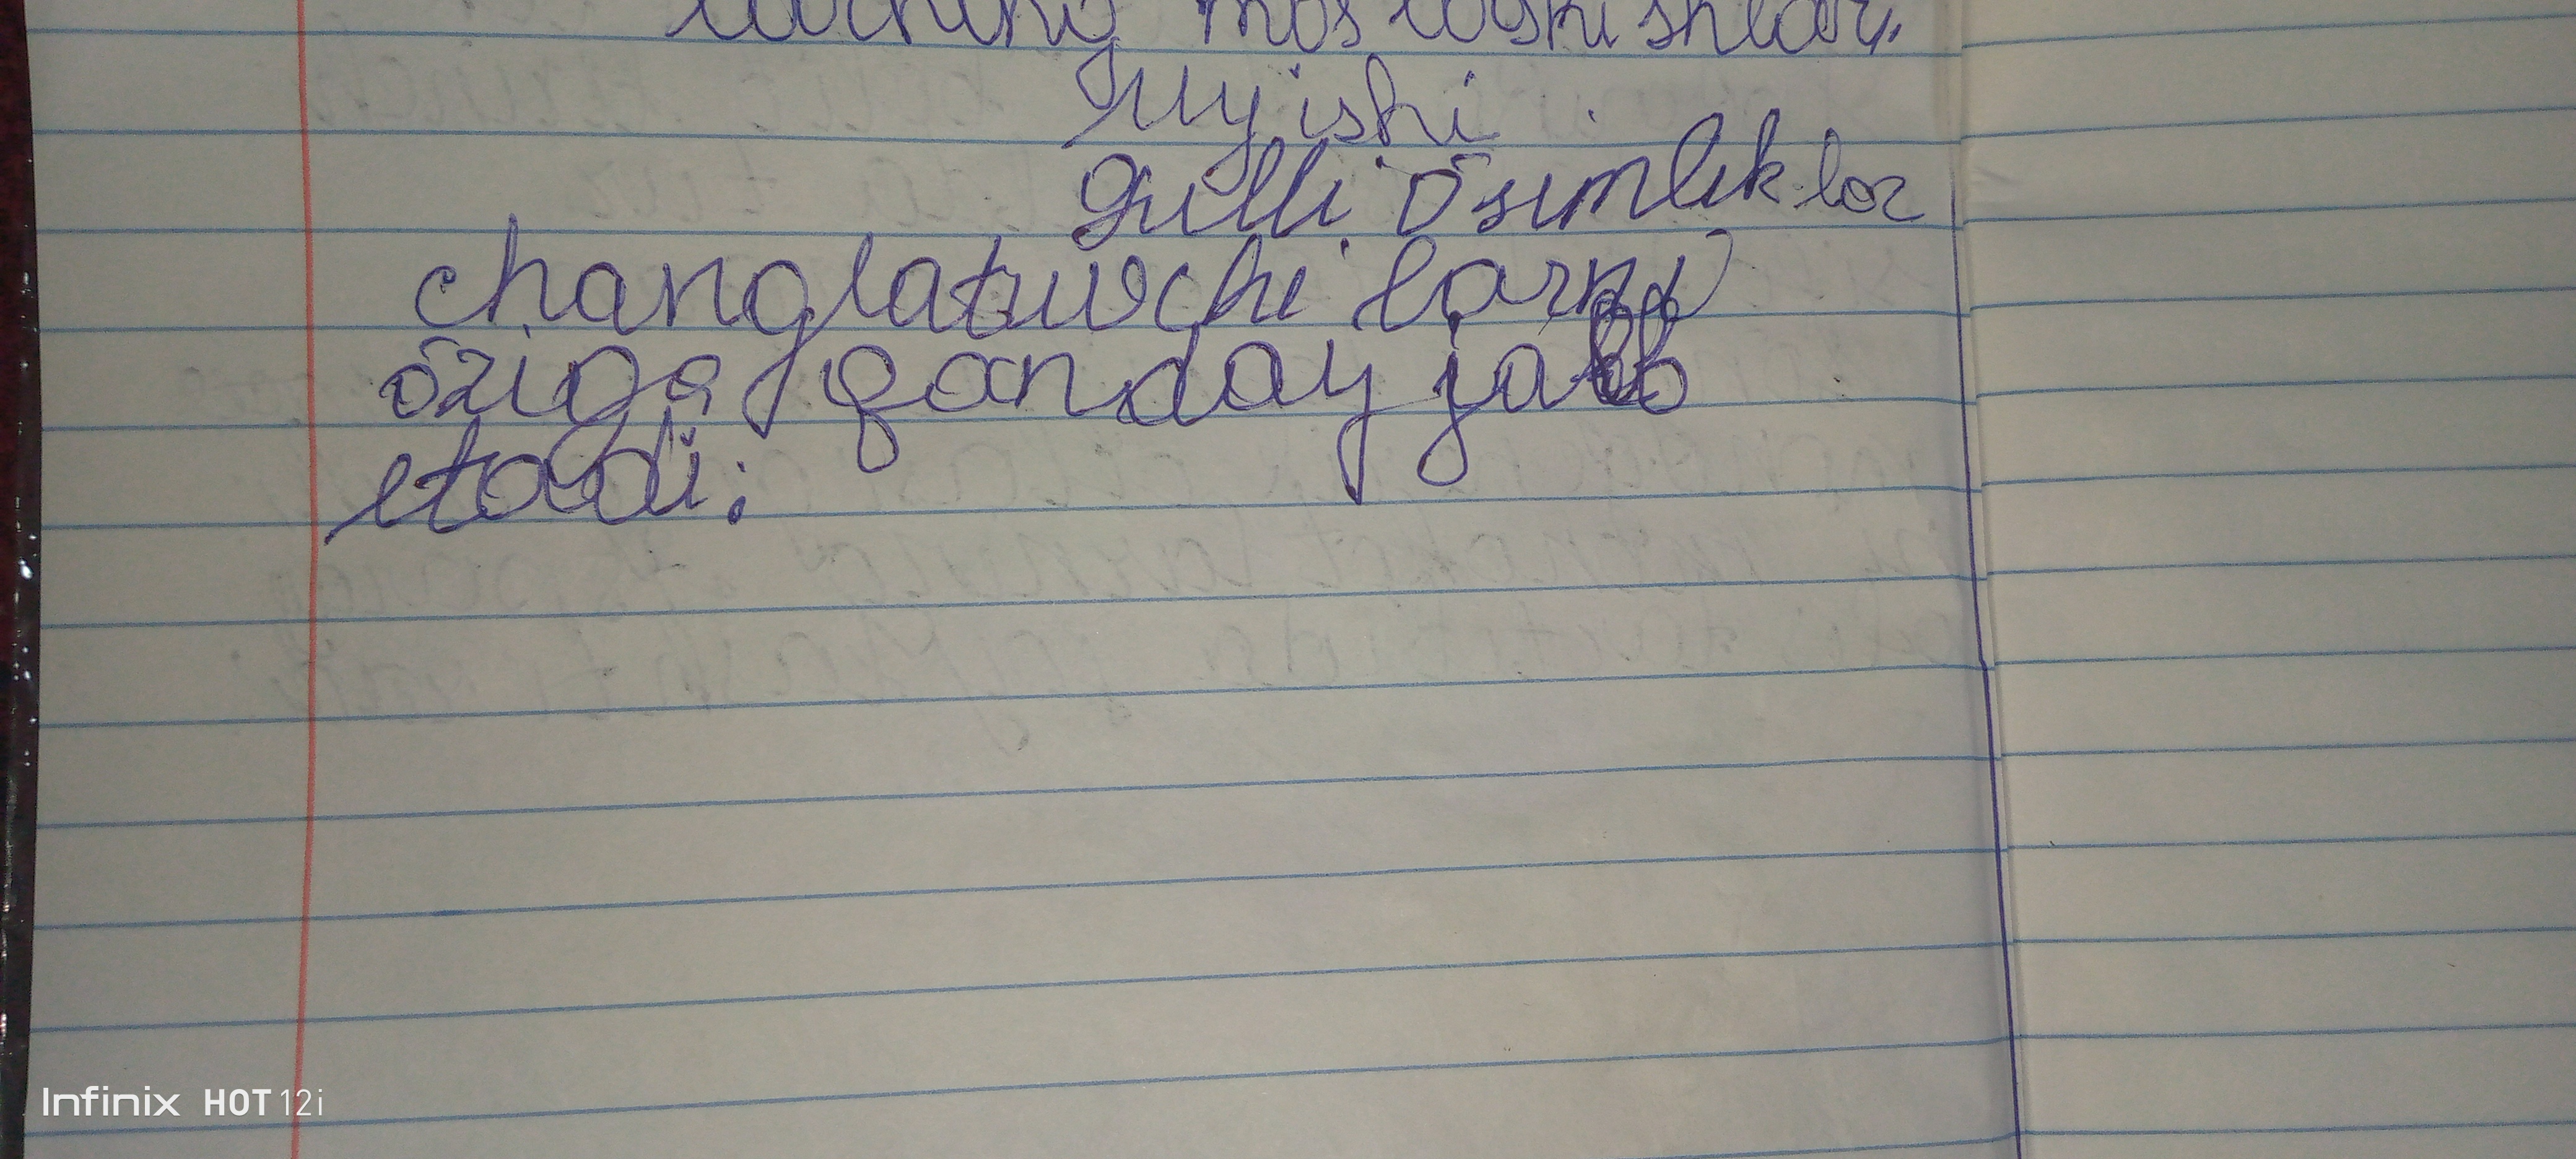 larning moslashishlari,
Uy ishi
Gulli õsimliklar
changlatuvchilarni
õziga qanday jalb
etadi:
Infinix HOT 12i